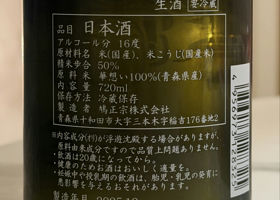 生酒 要冷蔵
品目 日本酒
アルコール分 16度
原材料 米(国産)、米こうじ(国産米)
精米歩合 50%
原料米 華想い100%(青森県産)
内容量 720ml
保存方法 冷蔵保存
製造者 鳩正宗株式会社
青森県十和田市大字三本木字稲吉176番地2
※内容成分(オリ)が浮遊沈殿する場合がありますが、
原料由来成分ですので品質上問題ありません。
・飲酒は20歳になってから。
・健康のためお酒はおいしく適量を。
・妊娠中や授乳期の飲酒は、胎児・乳児の発育に
悪影響を与えるおそれがあります。
製造年月